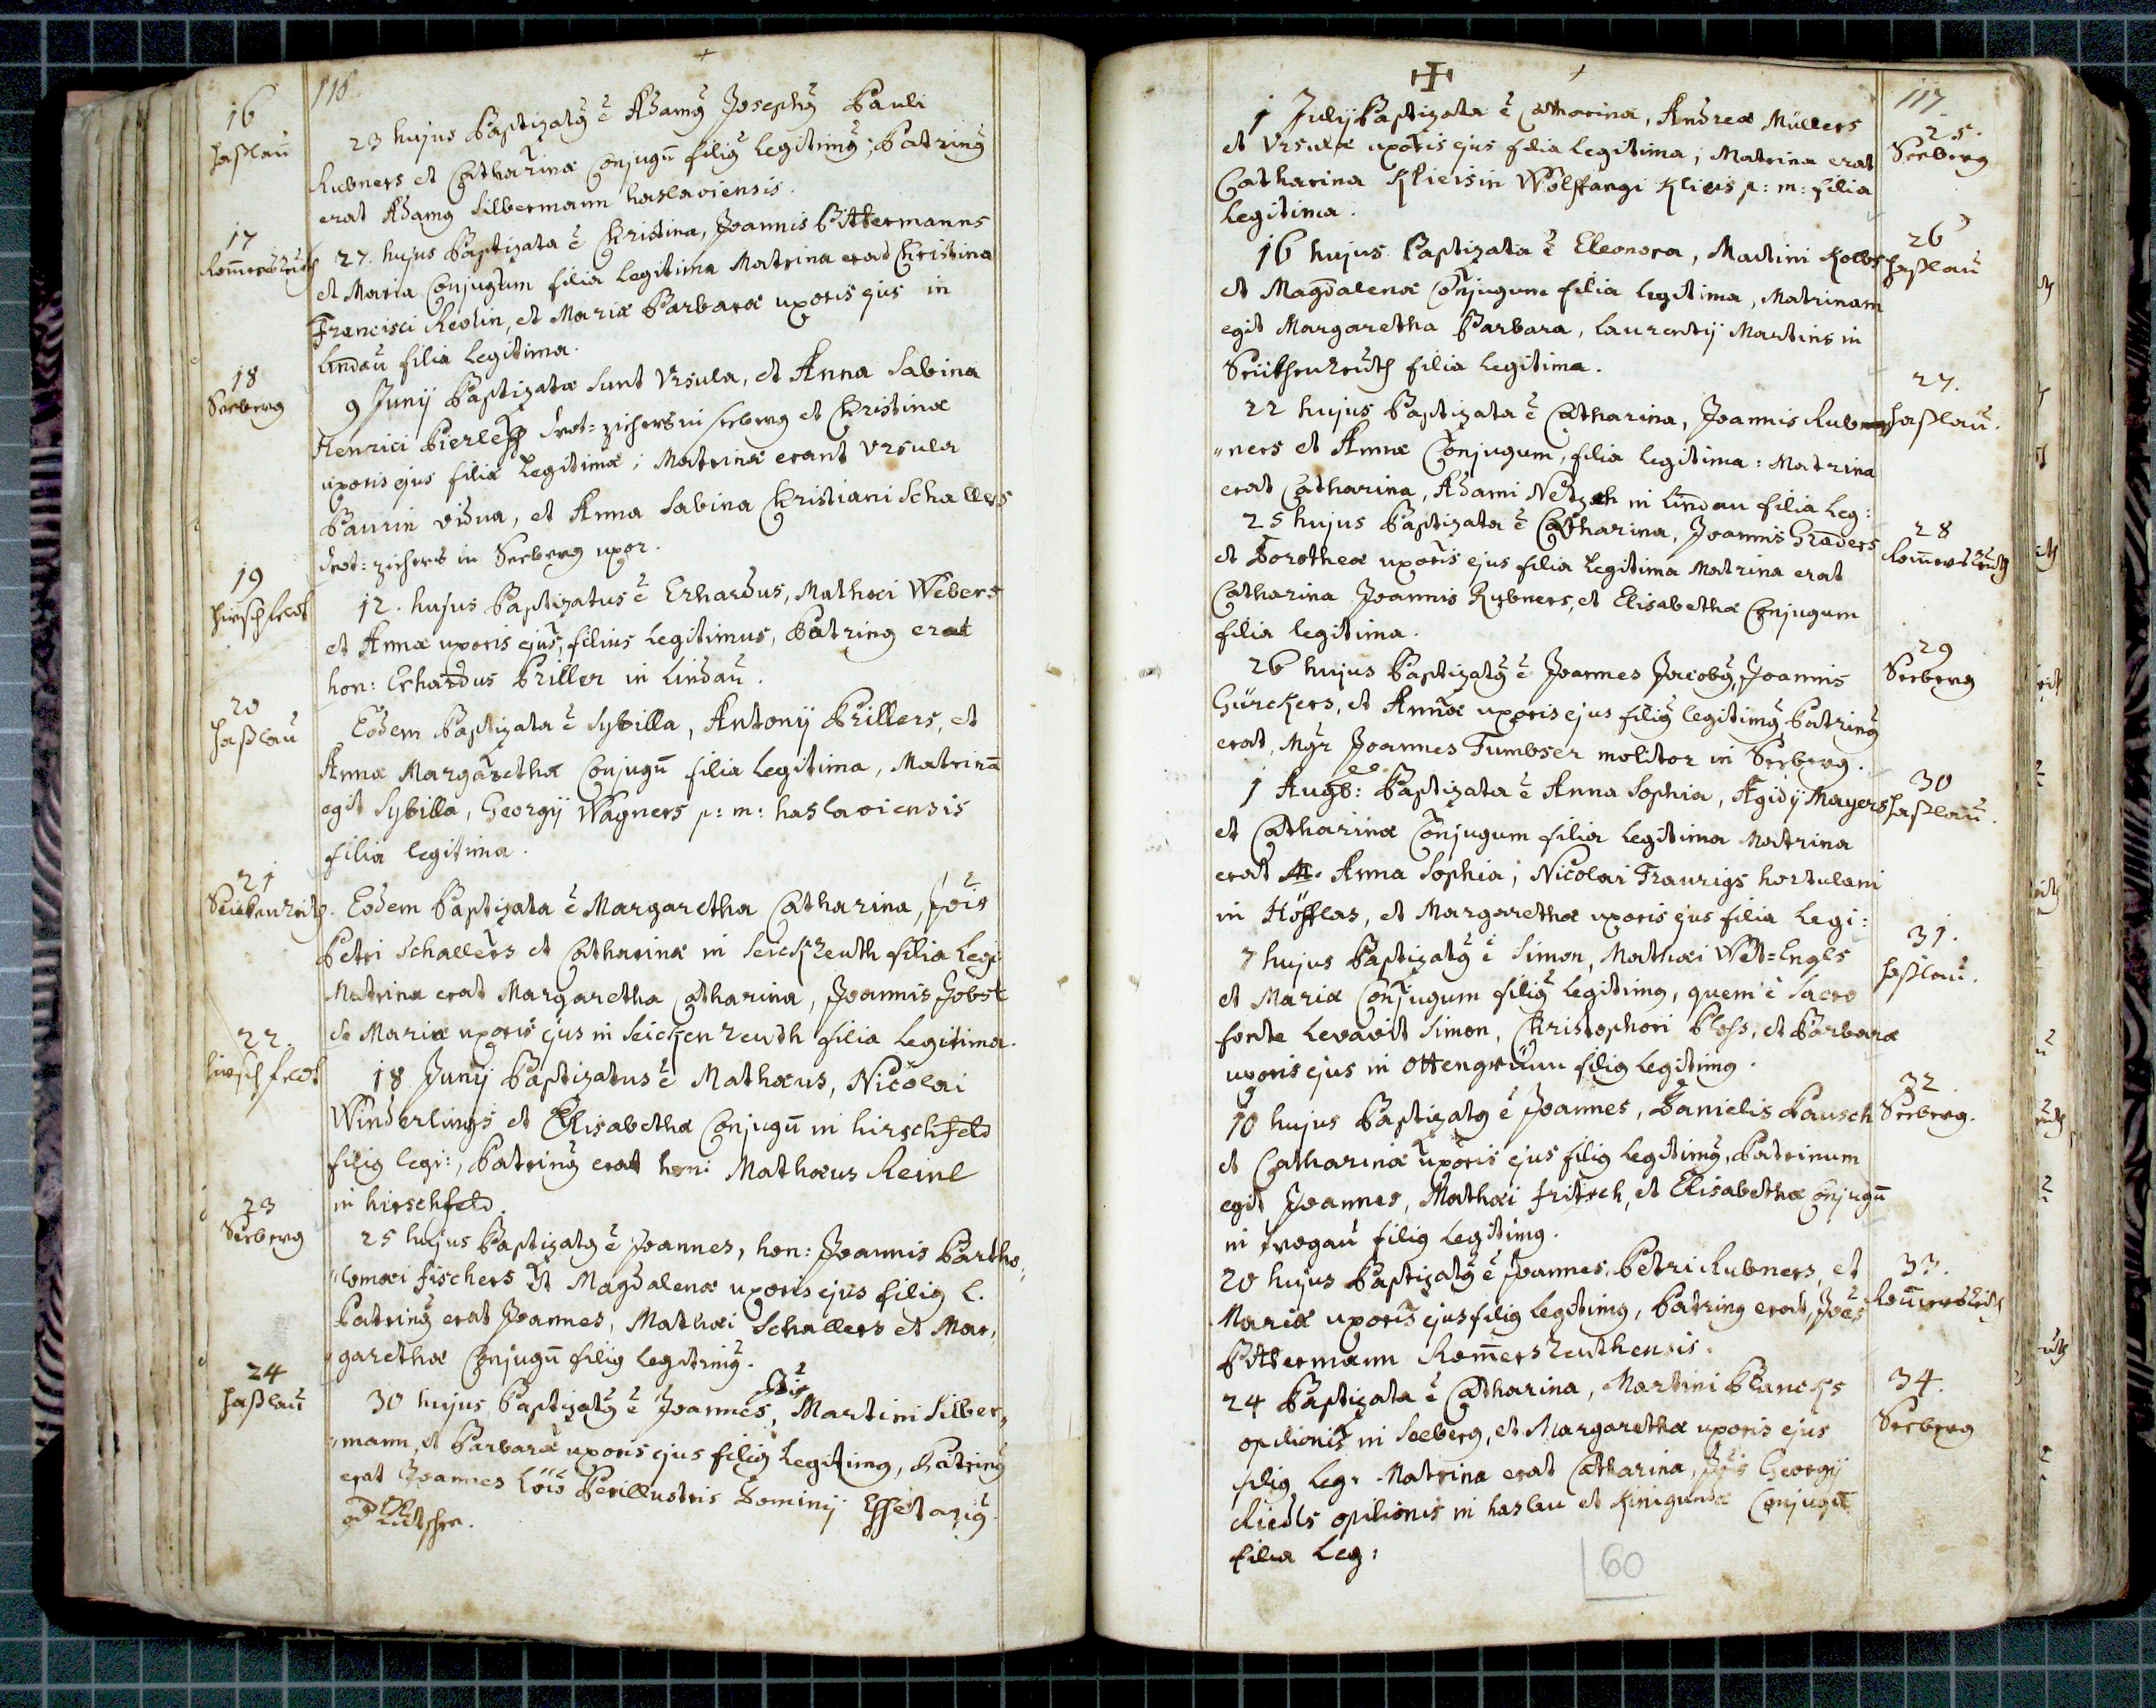 116.
16
Haßlau
23 hujus Baptizatq̃ ẽ Adamq̃ Josephq̃ Pauli
Rubners et Catharinæ Conjugũ filiq̃ legitimq̃; Patrinq̃
erat Adamq Silbermann haslaviensis.
17
Romersreuth
27. hujus Baptizata ẽ Christina, Joannis Bittermanns
et Maria Conjugum filia legitima Matrina erat Christina
Francisci Reolin, et Mariæ Barbaræ uxoris ejus in
Lindau filia legitima.
18
Seeberg
9 Junij Baptizatæ sunt Ursula, et Anna Sabina
Henrici Pierless in seeberg et Christinæ
uxoris ejus filiæ Legitimæ; Matrinæ erant Ursula
Baurin vidua, et Anna Sabina Christiani Schallers
in Seeberg uxor.
19
Hirschfeldt
12. hujus Baptizatus ẽ Erhardus, Mathæi Webers
et Annæ uxoris ejus, filius legitimus, Patrinq erat
hon: Erhardus Briller in Lindau.
20
Haßlau
Eodem Baptizata ẽ Sybilla, Antonij Brillers, et
Annæ Margarethæ Conjugũ filia legitima, Matrinã
egit Sybilla, Georgij Wagners p: m: haslaviensis
filia legitima.
21
Seickenreith.
Eodem Baptizata ẽ Margaretha Catharina, Jois
Petri Schallers et Catharinæ in Seickzreuth filia legi
Matrina erat Margaretha Catharina, Joannis Jobst
et Mariæ uxoris ejus in Seickenreuth filia legitima.
22.
hirschfeldt
18 Junij Baptizatus ẽ Mathæus, Nicolai
Winderlings et Elisabethæ Conjugũ in hirschfeld
filiq legi:, Patrinq̃ erat Mathæus Reinl
in hirschfeld.
23
Seeberg
25 hujus Baptizatq ẽ Joannes, hon: Joannis Bartho„
„lomæi fischers et Magdalenæ uxoris ejus filiq L.
Patrinq̃ erat Joannes, Mathæi Schallers et Mar„
„garethæ Conjugũ filiq legitimq̃.
24
Haßlau
30 hujus Baptizatq̃ ẽ Joannes, Jois Martini Silber„
„mann, et Barbaræ uxoris ejus filiq̃ Legitimq, Patrinq̃
erat Joannes Perillustris Dominij

117.
1 Julij Baptizata ẽ Catharina, Andreæ Müllers
et Ursulæ uxoris ejus filia legitima; Matrina erat
Catharina Klieisin Wolffangi Klieis p: m: filia
legitima.
25.
Seeberg
16 hujus Baptizata ẽ Eleonora, Martini Kolbs
et Magdalenæ Conjugum filia legitima, Matrinam
egit Margaretha Barbara, Laurentij Martins in
Seuckenreuth filia legitima.
26
Haßlau
22 hujus Baptizata ẽ Catharina, Joannis Rub
„ners et Annæ Conjugum, filia legitima: Matrina
erat Catharina, Adami Netzsch in Lindau filia Leg:
27.
Haßlau.
25 hujus Baptizata ẽ Catharina, Joannis Graders
et Dorotheæ uxoris ejus filia legitima Matrina erat
Catharina Joannis Rubners, et Elisabethæ Conjugum
filia legitima.
28
Romersreuth
26 hujus Baptizatq̃ ẽ Joannes Jacobq̃, Joannis
Gürckers, et Annæ uxoris ejus filiq̃ legitimq̃, Patrinq̃
erat, Mgr Joannes Tumbser molitor in Seeberg.
29
Seeberg
1 Augb: Baptizata ẽ Anna Sophia, Ægidij Mayers
et Catharinæ Conjugum filia Legitima Matrina
erat Anna Sophia, Nicolai Traurigs hortulani
in Höfflas, et Margarethæ uxoris ejus filia Legi:
30
Haßlau.
7 hujus Baptizatq̃ ẽ Simon, Mathæi Wet=Engls
et Mariæ Conjugum filiq̃ legitimq, quem ẽ Sacro
fonte levavit Simon, Christophori Ploss, et Barbaræ
uxoris ejus in Ottengrünn filiq Legitimq.
31.
Haßlau.
10 hujus Baptizatq ẽ Joannes, Danielis Pausch
et Catharinæ uxoris ejus filiq Legitimq̃, Patrinum
egit Joannes, Mathæi Fritsch, et Elisabethæ Conjugũ
in Trogau filiq Legitimq.
32.
Seeberg.
20 hujus Baptizatq̃ ẽ Joannes, Petri Rubners, et
Mariæ uxoris ejus filiq Legitimq, Patrinq erat, Joes
Bittermann Romersreuthensis.
33.
Romersreuth
24 Baptizata ẽ Catharina, Martini Plancks
opilionis in Seeberg, et Margarethæ uxoris ejus
filiq Leg. Matrina erat Catharina, Jois Georgij
Riedls opilionis in haslau et Kinigundæ Conjugũ
filia Leg:
34.
Seeberg
60